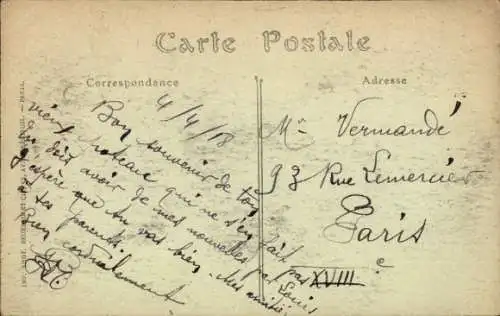 Carte Postale
Correspondance
Adresse
4/4/18
Bon souvenir de ton
vieux poteau qui ne s'en fait pas
Tu dois avoir de mes nouvelles par Louis
J'espère que tu vas bien. Mes amitiés
à tes parents.
Bien cordialement
Mr Vermandé
93 Rue Lemercier
Paris
XVIII e